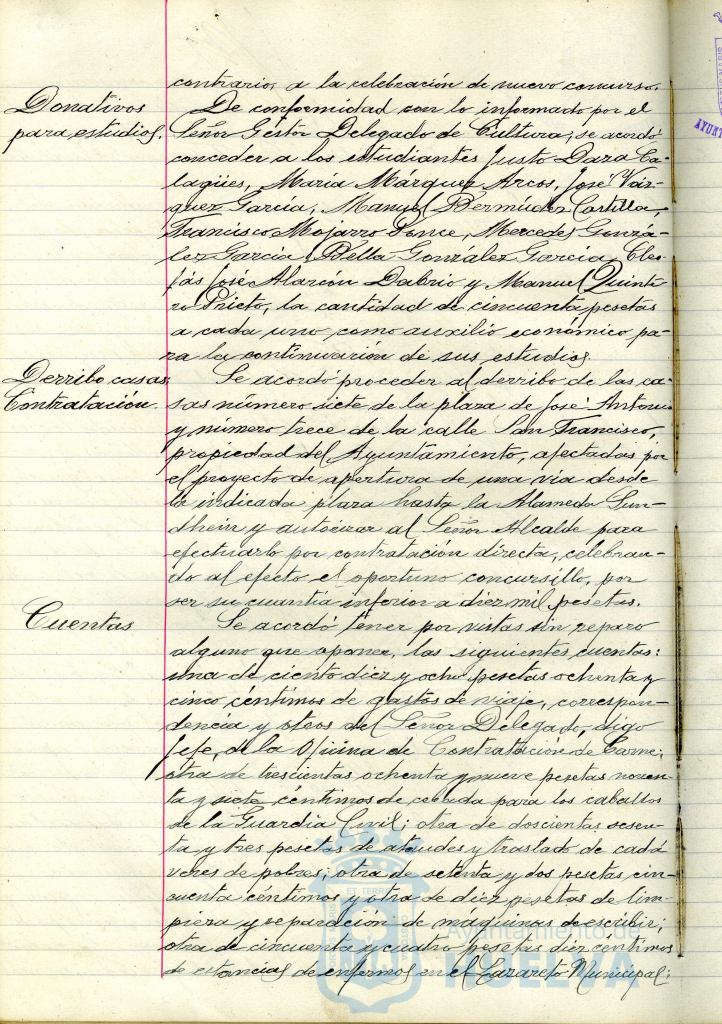 contrario, a la celebración de nuevo concurso.
Donativos
para estudios.
De conformidad con lo informado por el
Señor Gestor Delegado de Cultura, se acordó
conceder a los estudiantes Justo Dara Ca-
lagües, María Márquez Arcos, José Váz-
quez García, Manuel Bermúdez Castilla,
Francisco Mojarro Ponce, Mercedes Gonzá-
lez García, Bella González García, Cleo-
fás José Alarcón Dabrio y Manuel Quinte-
ro Prieto, la cantidad de cincuenta pesetas
a cada uno como auxilio económico pa-
ra la continuación de sus estudios.
Derribo casas
Contratación.
Se acordó proceder al derribo de las ca-
sas número siete de la plaza de José Antonio
y número trece de la calle San Francisco,
propiedad del Ayuntamiento, afectadas por
el proyecto de apertura de una vía desde
la indicada plaza hasta la Alameda Sun-
dhein y autorizar al Señor Alcalde para
efectuarlo por contratación directa, celebran-
do al efecto el oportuno concursillo, por
ser su cuantía inferior a diez mil pesetas.
Cuentas
Se acordó tener por vistas sin reparo
alguno que oponer, las siguientes cuentas:
una de ciento diez y ocho pesetas ochenta y
cinco céntimos de gastos de viaje, correspon-
dencia y otros del Señor Delegado, digo
Jefe, de la Oficina de Contratación de Carne;
otra de trescientas ochenta y nueve pesetas noven-
ta y siete céntimos de cebada para los caballos
de la Guardia Civil; otra de doscientas sesen-
ta y tres pesetas de ataudes y traslado de cadá
veres de pobres; otra de setenta y dos pesetas cin-
cuenta céntimos y otra de diez pesetas de lim-
pieza y reparación de máquinas de escribir;
otra de cincuenta y cuatro pesetas diez centimos
de estancias de enfermos en el Lazareto Municipal;
Ayuntamiento de
HUELVA